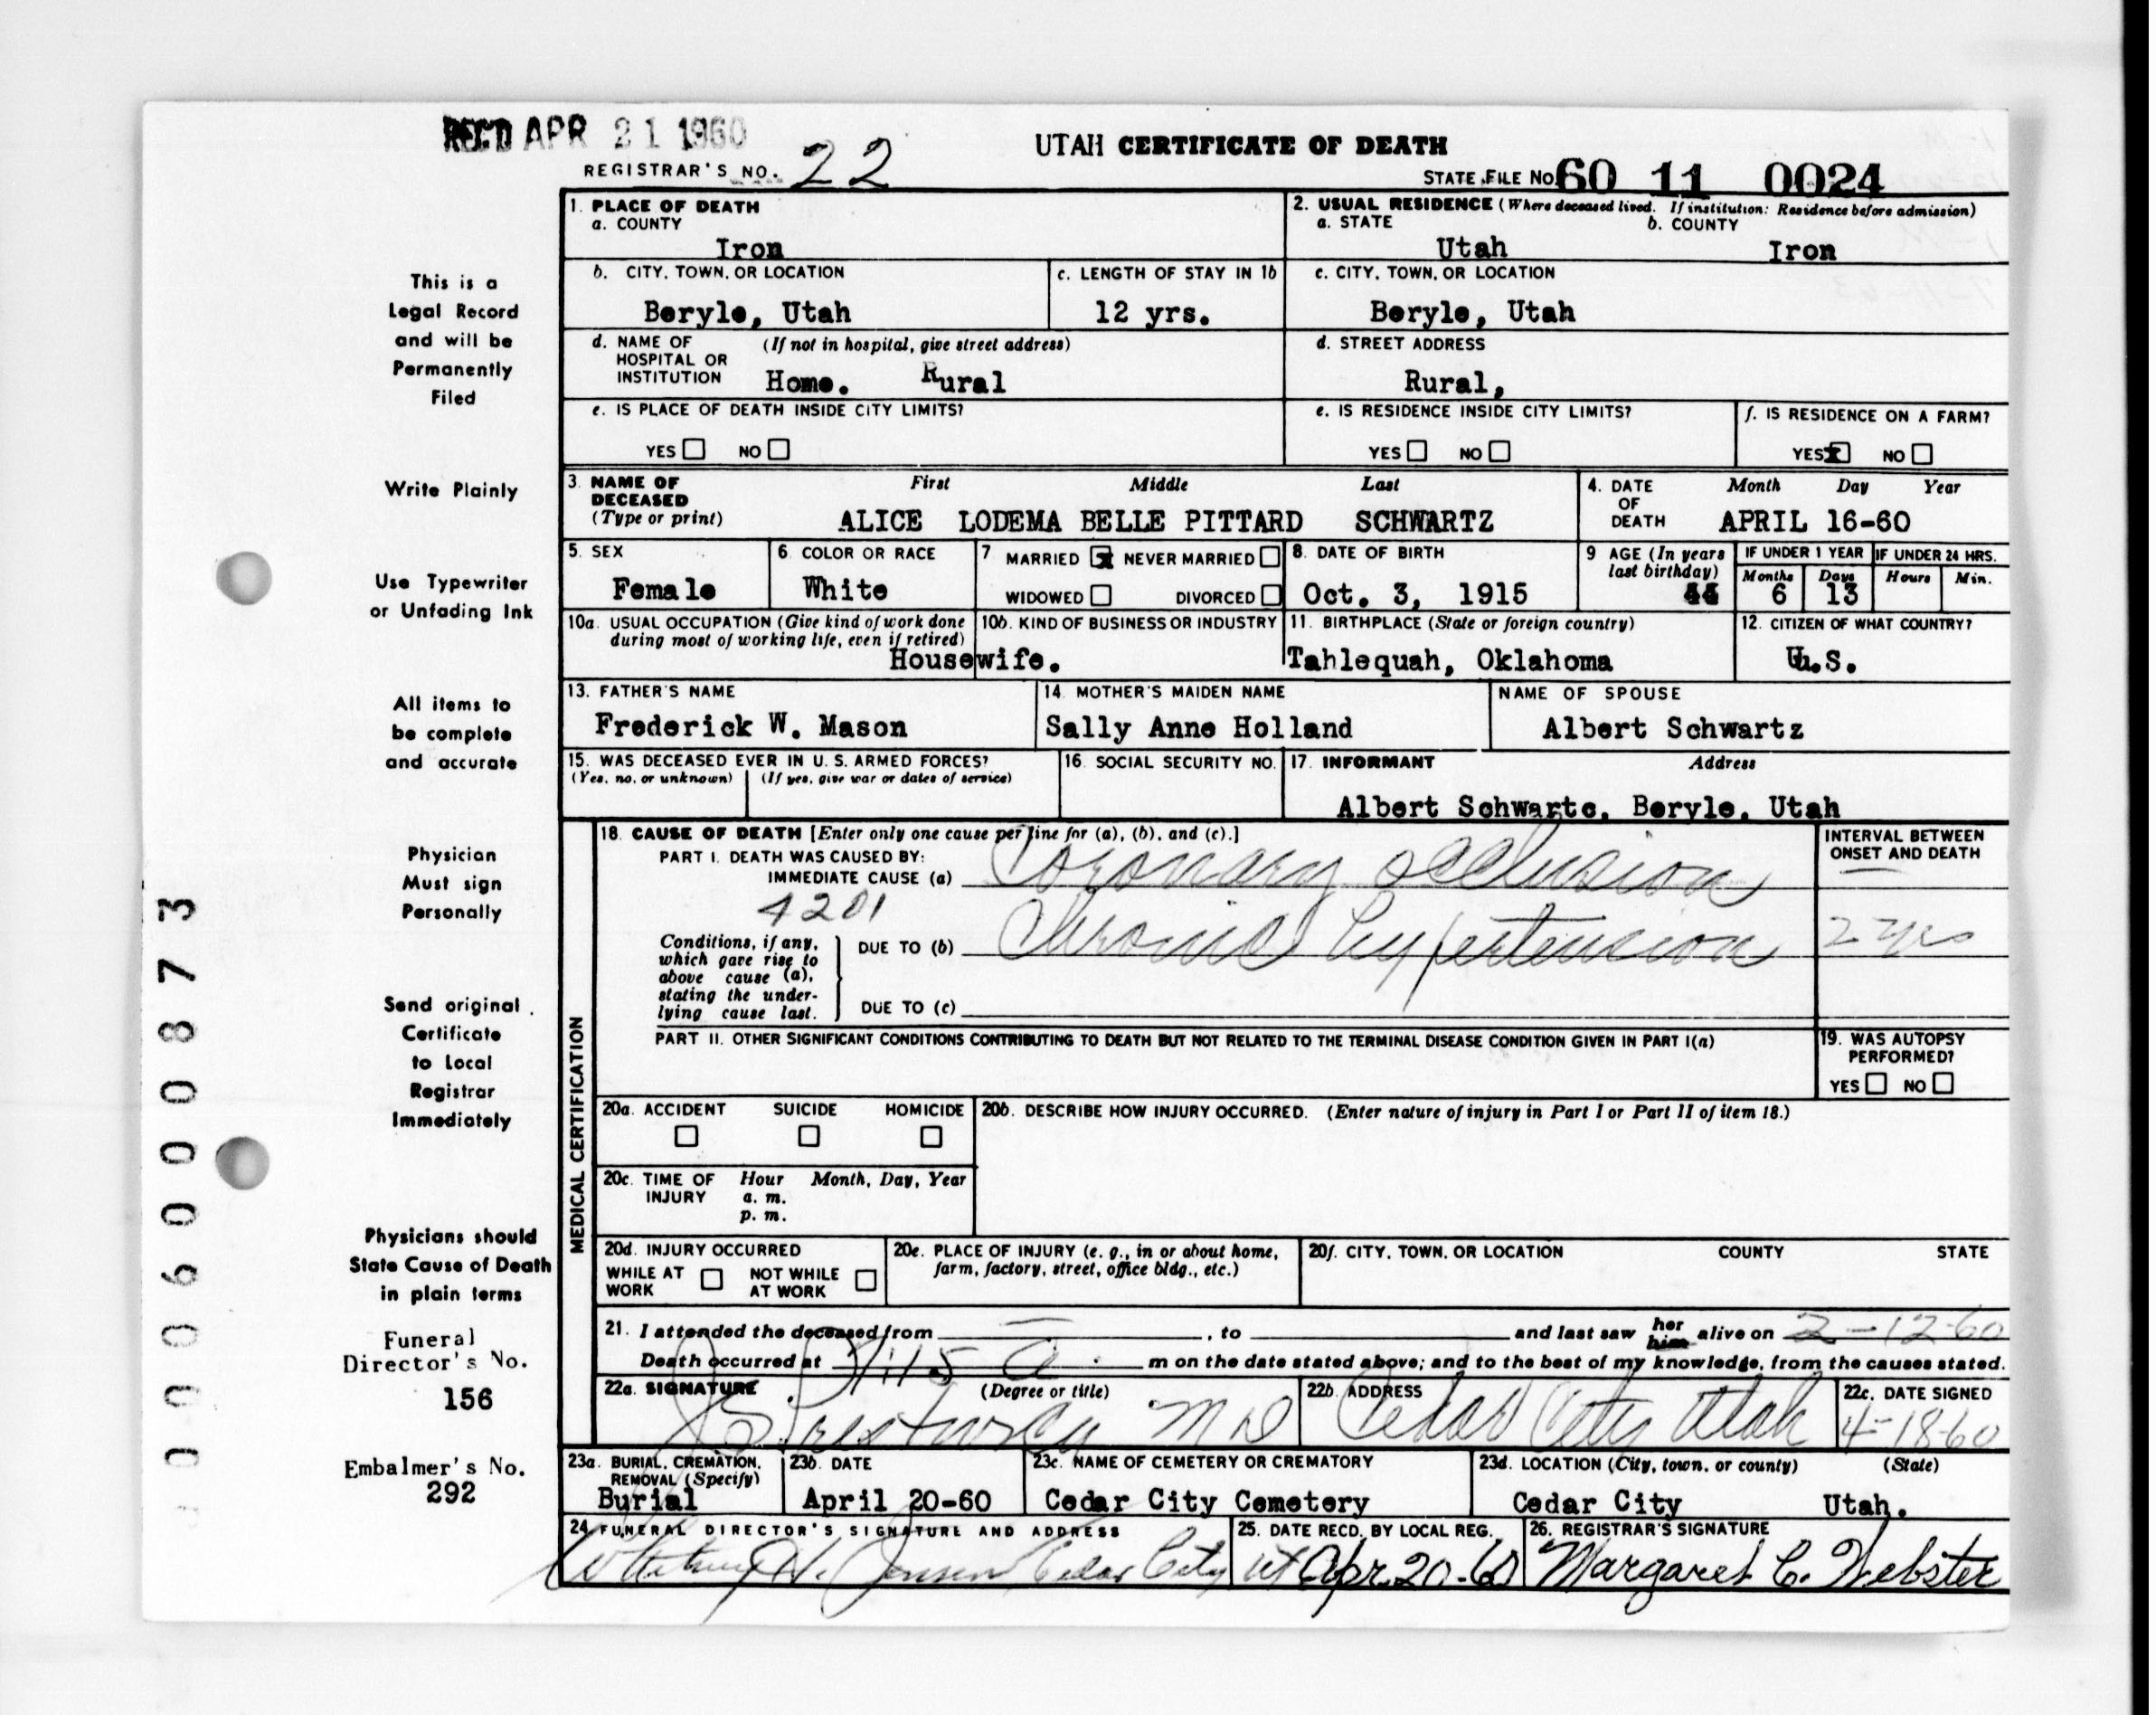 REC'D APR 21 1960
UTAH CERTIFICATE OF DEATH
REGISTRAR'S NO. 22
STATE FILE NO. 60 11 0024
1. PLACE OF DEATH
a. COUNTY
Iron
2. USUAL RESIDENCE (Where deceased lived. If institution: Residence before admission)
a. STATE b. COUNTY
Utah Iron
b. CITY, TOWN, OR LOCATION
Beryle, Utah
c. LENGTH OF STAY IN 1b
12 yrs.
c. CITY, TOWN, OR LOCATION
Beryle, Utah
d. NAME OF (If not in hospital, give street address)
HOSPITAL OR
INSTITUTION Home. Rural
d. STREET ADDRESS
Rural,
e. IS PLACE OF DEATH INSIDE CITY LIMITS?
YES NO
e. IS RESIDENCE INSIDE CITY LIMITS?
YES NO
f. IS RESIDENCE ON A FARM?
YES X NO
3. NAME OF DECEASED (Type or print)
First Middle Last
ALICE LODEMA BELLE PITTARD SCHWARTZ
4. DATE OF DEATH
Month Day Year
APRIL 16-60
5. SEX
Female
6. COLOR OR RACE
White
7 MARRIED X NEVER MARRIED
WIDOWED DIVORCED
8. DATE OF BIRTH
Oct. 3, 1915
9 AGE (In years last birthday)
44
IF UNDER 1 YEAR
Months Days
6 13
IF UNDER 24 HRS.
Hours Min.
10a. USUAL OCCUPATION (Give kind of work done
during most of working life, even if retired)
10b. KIND OF BUSINESS OR INDUSTRY
Housewife.
11. BIRTHPLACE (State or foreign country)
Tahlequah, Oklahoma
12. CITIZEN OF WHAT COUNTRY?
U.S.
13. FATHER'S NAME
Frederick W. Mason
14. MOTHER'S MAIDEN NAME
Sally Anne Holland
NAME OF SPOUSE
Albert Schwartz
15. WAS DECEASED EVER IN U. S. ARMED FORCES?
(Yes, no, or unknown) (If yes, give war or dates of service)
16. SOCIAL SECURITY NO.
17. INFORMANT Address
Albert Schwartc. Beryle. Utah
MEDICAL CERTIFICATION
18. CAUSE OF DEATH [Enter only one cause per line for (a), (b), and (c).]
PART I. DEATH WAS CAUSED BY:
IMMEDIATE CAUSE (a) Coronary occlusion
4201
INTERVAL BETWEEN
ONSET AND DEATH
Conditions, if any,
which gave rise to
above cause (a),
stating the under-
lying cause last.
DUE TO (b) Chronic hypertension 2 yrs
DUE TO (c)
PART II. OTHER SIGNIFICANT CONDITIONS CONTRIBUTING TO DEATH BUT NOT RELATED TO THE TERMINAL DISEASE CONDITION GIVEN IN PART I(a)
19. WAS AUTOPSY
PERFORMED?
YES NO
20a. ACCIDENT SUICIDE HOMICIDE
20b. DESCRIBE HOW INJURY OCCURRED. (Enter nature of injury in Part I or Part II of item 18.)
20c. TIME OF INJURY
Hour Month, Day, Year
a. m.
p. m.
20d. INJURY OCCURRED
WHILE AT WORK NOT WHILE AT WORK
20e. PLACE OF INJURY (e. g., in or about home,
farm, factory, street, office bldg., etc.)
20f. CITY, TOWN, OR LOCATION COUNTY STATE
21. I attended the deceased from — , to and last saw her him alive on 2-12-60
Death occurred at 3:15 a. m on the date stated above; and to the best of my knowledge, from the causes stated.
22a. SIGNATURE (Degree or title)
M D
22b. ADDRESS
Cedar City Utah
22c. DATE SIGNED
4-18-60
23a. BURIAL, CREMATION,
REMOVAL (Specify)
Burial
23b. DATE
April 20-60
23c. NAME OF CEMETERY OR CREMATORY
Cedar City Cemetery
23d. LOCATION (City, town, or county) (State)
Cedar City Utah.
24 FUNERAL DIRECTOR'S SIGNATURE AND ADDRESS
H. Jensen Cedar City Ut
25. DATE RECD. BY LOCAL REG.
Apr. 20-60
26. REGISTRAR'S SIGNATURE
Margaret C. Webster
This is a
Legal Record
and will be
Permanently
Filed
Write Plainly
Use Typewriter
or Unfading Ink
All items to
be complete
and accurate
Physician
Must sign
Personally
Send original
Certificate
to Local
Registrar
Immediately
Physicians should
State Cause of Death
in plain terms
Funeral
Director's No.
156
Embalmer's No.
292
000600873